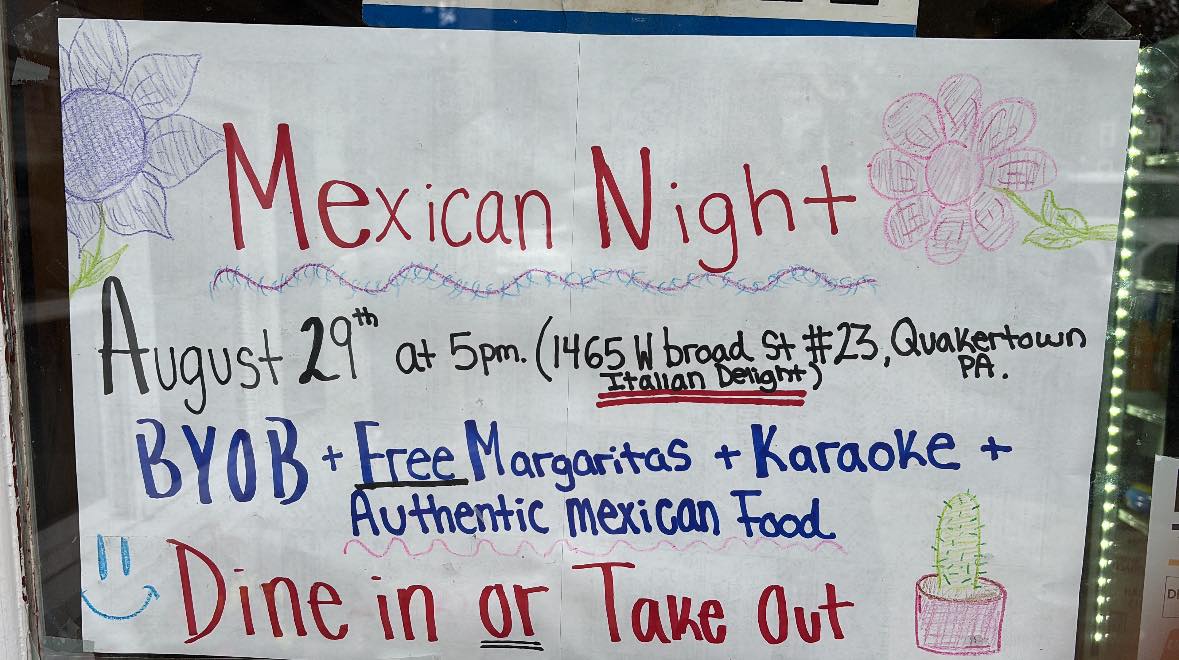 Mexican Night
August 29th at 5pm. (1465 W broad St #23, Quakertown PA.
Italian Delight)
BYOB + Free Margaritas + Karaoke +
Authentic mexican Food
Dine in or Take Out